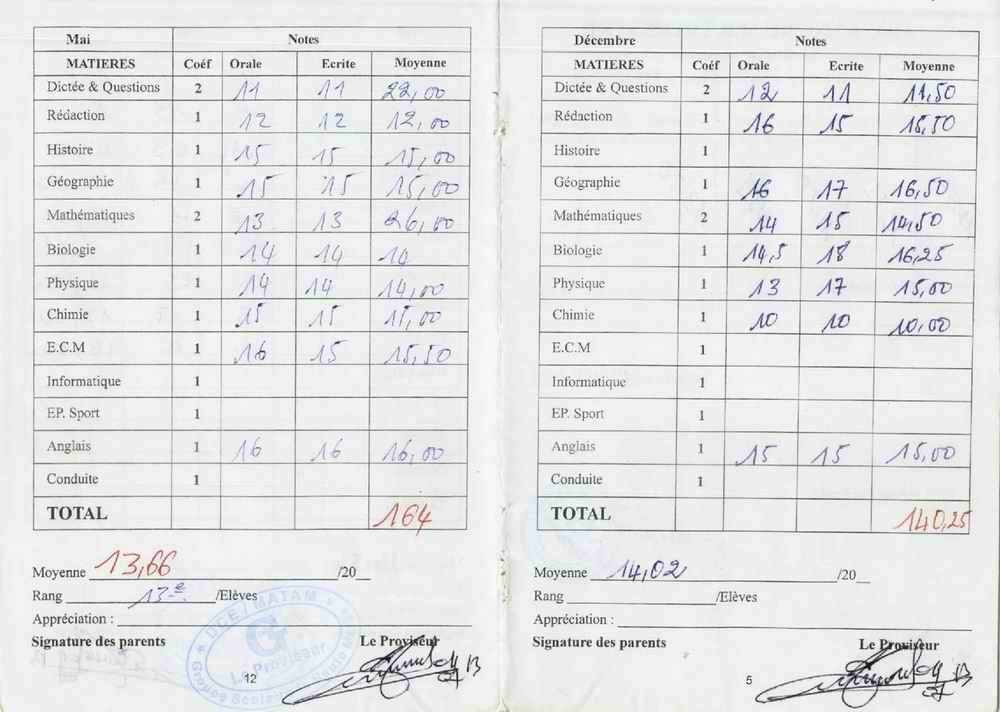 Mai Notes
MATIERES Coéf Orale Ecrite Moyenne
Dictée & Questions 2 11 11 22,00
Rédaction 1 12 12 12,00
Histoire 1 15 15 15,00
Géographie 1 15 15 15,00
Mathématiques 2 13 13 26,00
Biologie 1 14 14 14
Physique 1 14 14 14,00
Chimie 1 15 15 15,00
E.C.M 1 16 15 15,50
Informatique 1
EP. Sport 1
Anglais 1 16 16 16,00
Conduite 1
TOTAL 164
Moyenne 13,66 /20
Rang 13e /Elèves
Appréciation :
Signature des parents Le Proviseur
DCE / MATAM
Le Proviseur
12
Décembre Notes
MATIERES Coéf Orale Ecrite Moyenne
Dictée & Questions 2 12 11 11,50
Rédaction 1 16 15 15,50
Histoire 1
Géographie 1 16 17 16,50
Mathématiques 2 14 15 14,50
Biologie 1 14,5 18 16,25
Physique 1 13 17 15,00
Chimie 1 10 10 10,00
E.C.M 1
Informatique 1
EP. Sport 1
Anglais 1 15 15 15,00
Conduite 1
TOTAL 140,25
Moyenne 14,02 /20
Rang /Elèves
Appréciation :
Signature des parents Le Proviseur
5